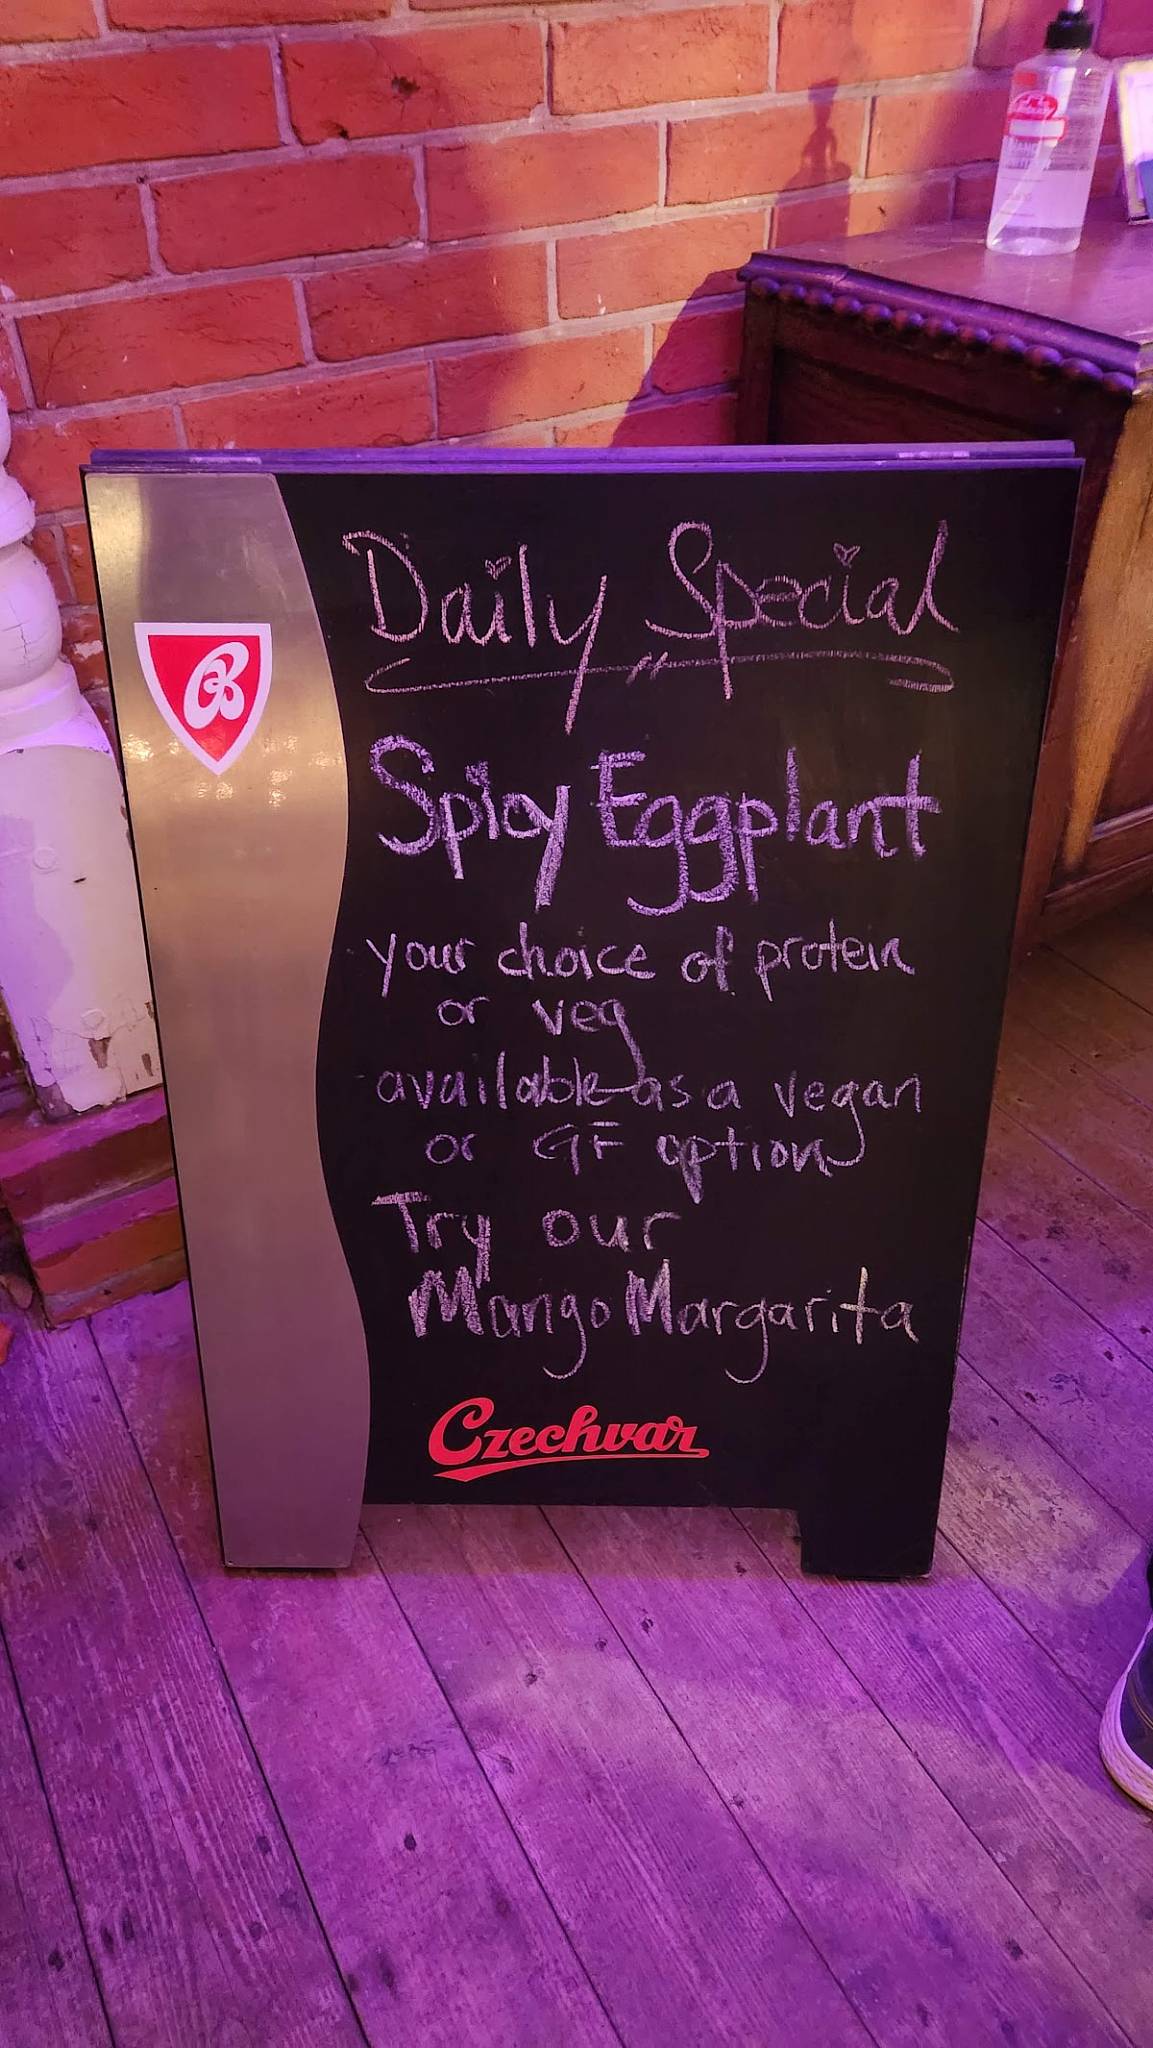 Daily Special
Spicy Eggplant
your choice of protein
or veg
available as a vegan
or GF option
Try our
Mango Margarita
B
Czechvar